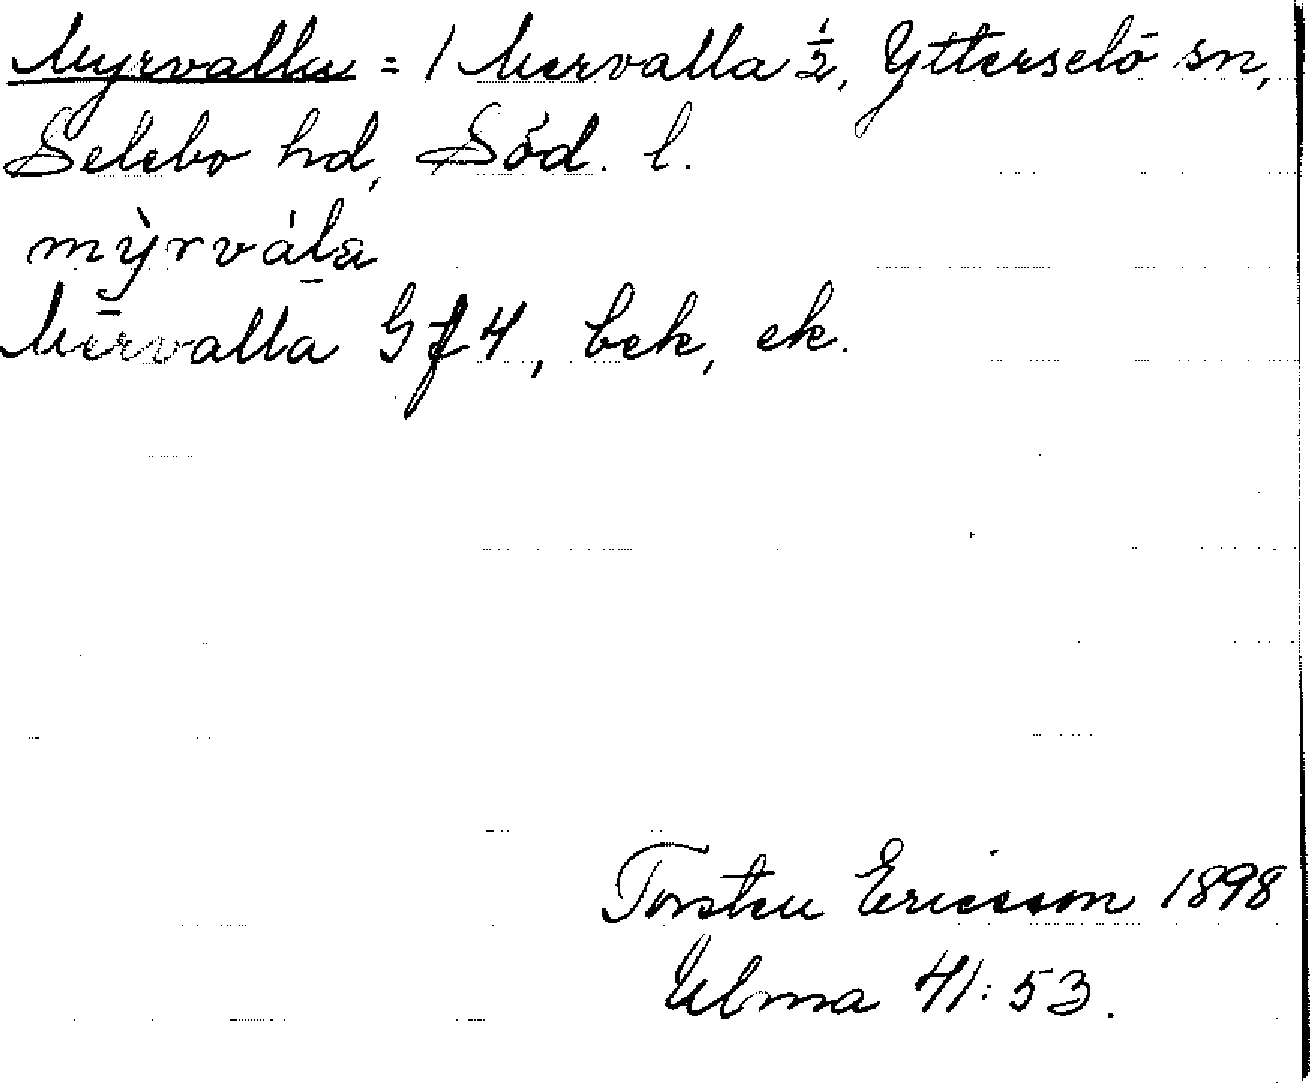 Myrvalla = / Mervalla ½, Ytterselö sn,
Selebo hd, Söd. l.
mỳrvála
Mervalla Gf 4, bek, ek.
Torsten Ericsson 1898
Ulma 41:53.